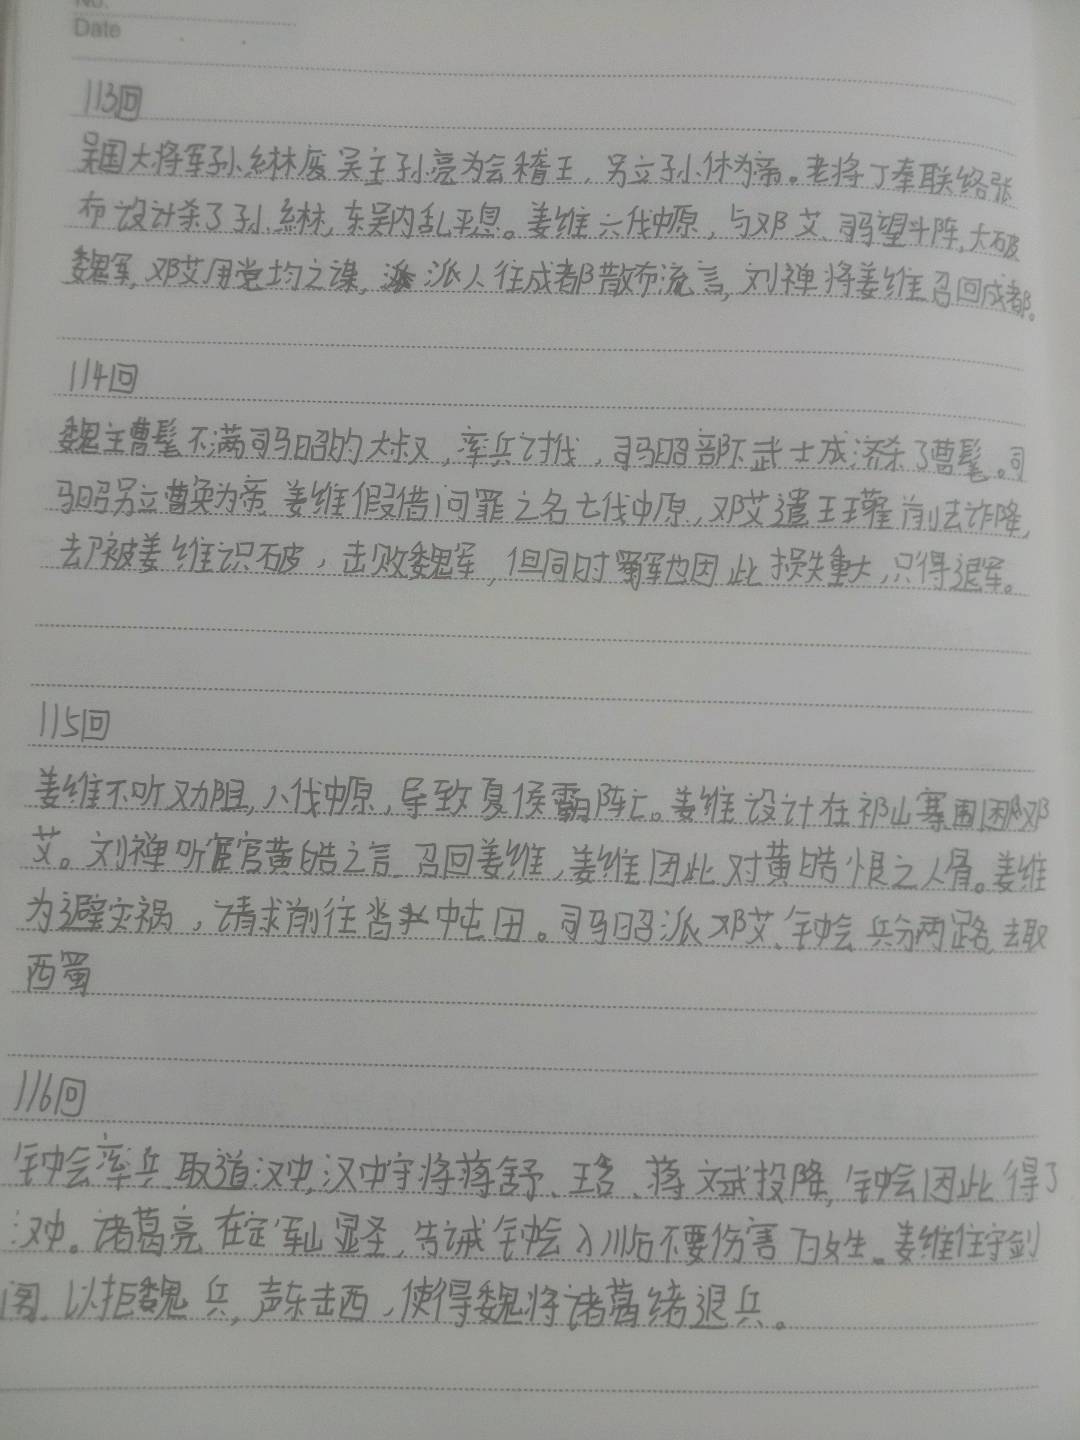 No.
Date
113回
吴国大将军孙綝废吴主孙亮为会稽王，另立孙休为帝。老将丁奉联络张
布设计杀了孙綝，东吴内乱平息。姜维六伐中原，与邓艾、司马望斗阵，大破
魏军，邓艾用党均之谋，派人往成都散布流言，刘禅将姜维召回成都。
114回
魏主曹髦不满司马昭的大叔，率兵讨伐，司马昭部下武士成济杀了曹髦。司
马昭另立曹奂为帝，姜维假借问罪之名七伐中原，邓艾遣王瓘前去诈降，
却被姜维识破，击败魏军，但同时蜀军也因此损失重大，只得退军。
115回
姜维不听劝阻，八伐中原，导致夏侯霸阵亡。姜维设计在祁山寨围困邓
艾。刘禅听宦官黄皓之言召回姜维，姜维因此对黄皓恨之人骨。姜维
为避灾祸，请求前往沓中屯田。司马昭派邓艾、钟会兵分两路，去取
西蜀
116回
钟会率兵取道汉中，汉中守将蒋舒、王含、蒋文斌投降，钟会因此得了
汉中。诸葛亮在定军山显圣，告诫钟会入川后不要伤害百姓。姜维住守剑
阁，以拒魏兵，声东击西，使得魏将诸葛绪退兵。